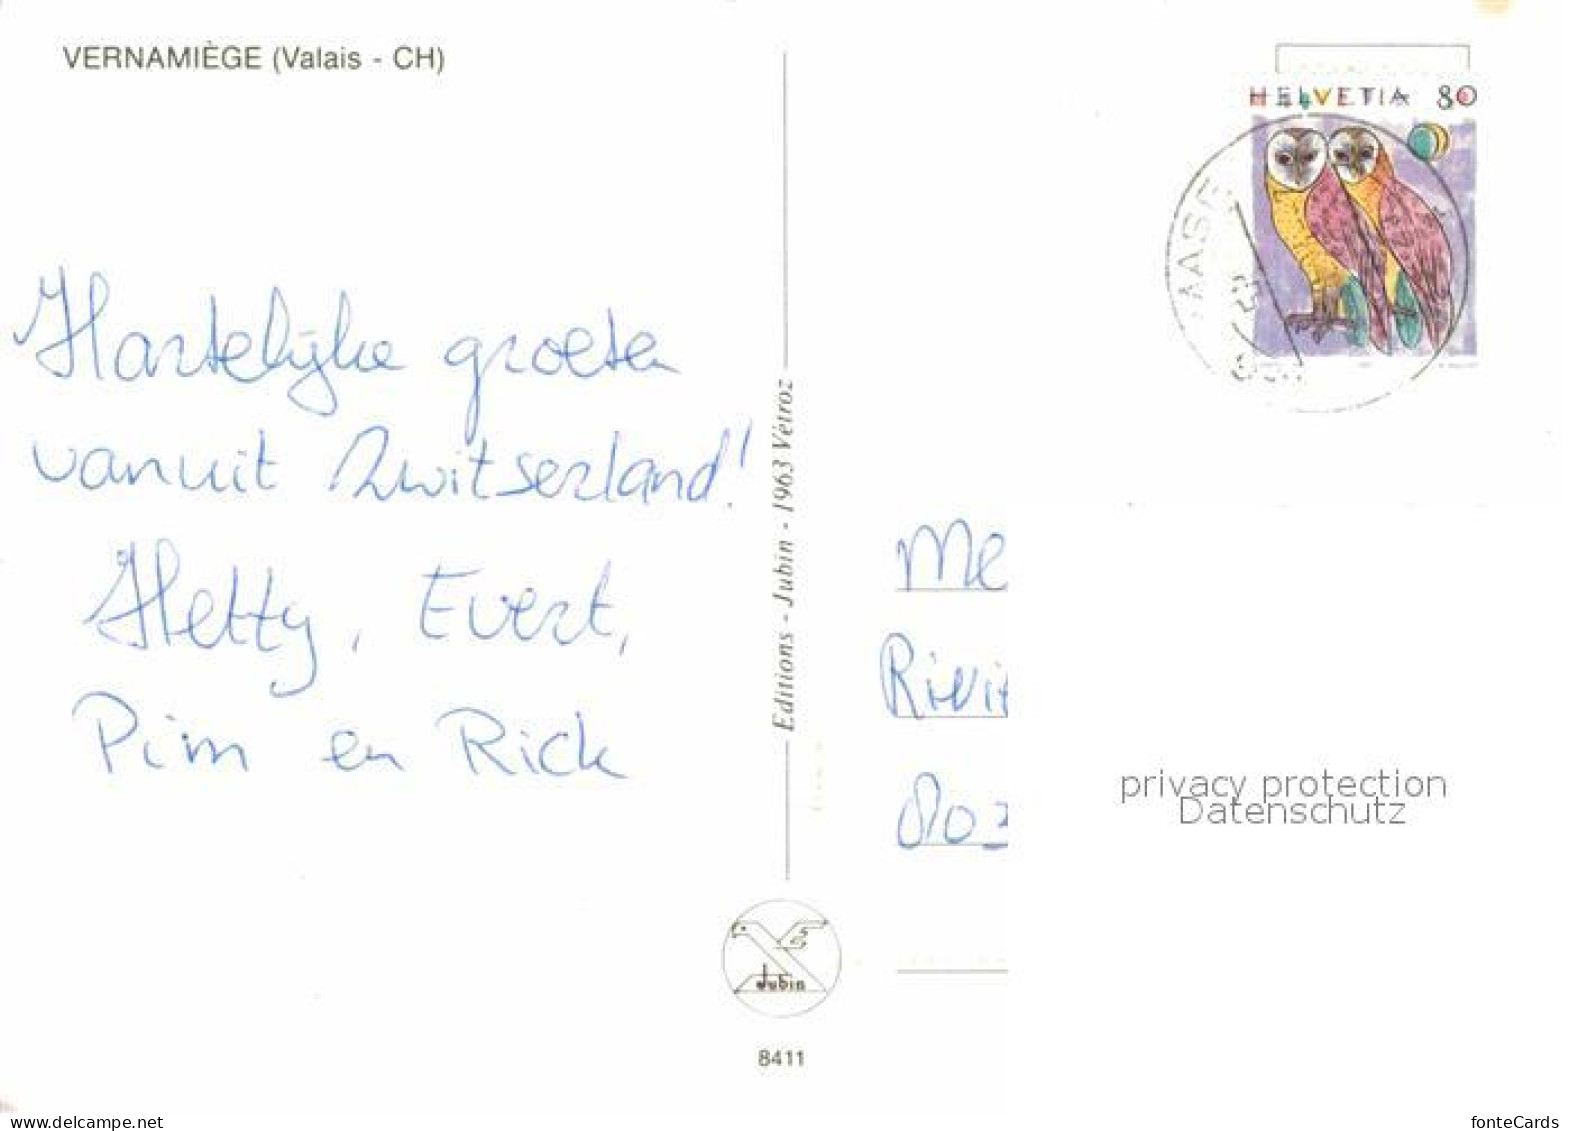 VERNAMIÈGE (Valais - CH)
HELVETIA 80
Hartelijke groeten
vanuit Zwitserland!
Hetty, Evert,
Pim en Rick
Editions - Jubin - 1963 Vétroz
Me
Rivi
803
privacy protection
Datenschutz
Jubin
8411
www.delcampe.net
fonteCards